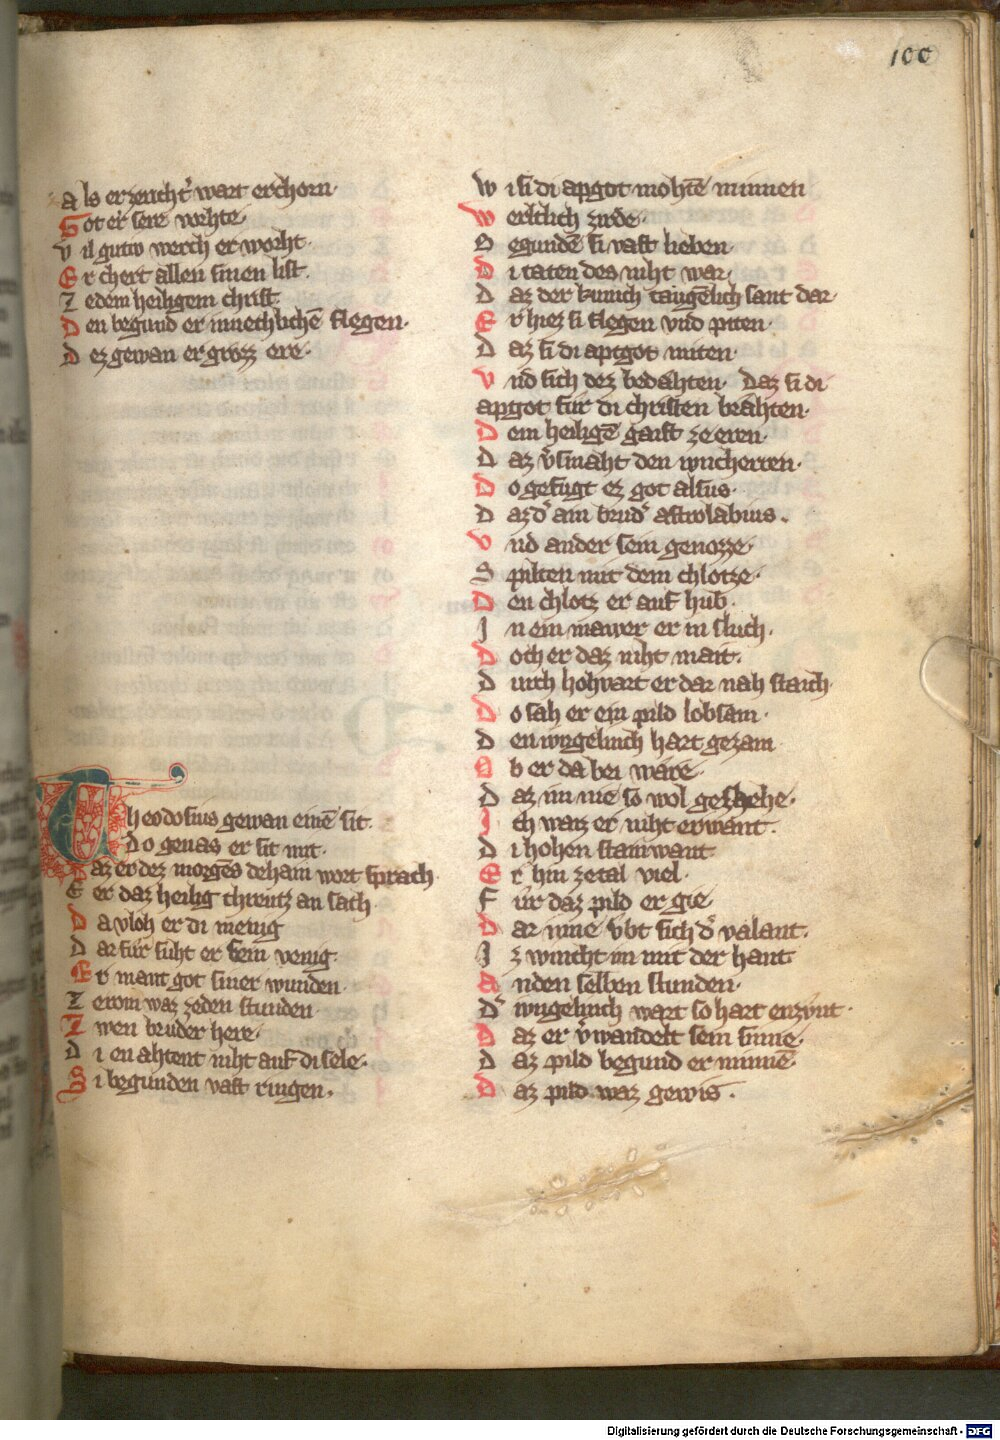 100
Als er ze richt͛ wart erchorn·
Got er sere vorhte·
Vil gutiv werch er worht
Er chert allen sinen list·
Ze dem heiligem christ·
Den begund er innechlichē flegen·
Dez gewan er grozz ere·
Theodosius gewan einē sit·
Do genas er sit mit·
Daz er dez morgēs dehain wort sprach
E er daz heilig chreutz an sach·
Da vloh er di menig
Dar fur suht er sein venig·
Er mant got siner wunden·
Ze rom waz ze den stunden·
Zwen bruder here·
Di en ahtent niht auf di sele·
Si begunden vast ringen.
Wi si di apgot mohtē minnen
Werltlich zirde·
Begundē si vast lieben·
Di taten des niht war
Daz der kunich taugēlich sant dar·
Er hiez si flegen vnd piten·
Daz si di aptgot miten·
Vnd sich dez bedæhten· Daz si di
apgot fur di christen bræhten·
Dem heiligē gaist ze eren·
Daz v͛smaht den wucherren·
Do gefugt ez got alsus·
Daz d͛ ain brud͛ astrolabius.
Vnd ander sein genozze·
Spilten mit dem chlotze·
Den chlotz er auf hub·
In ein mawer er in sluch·
Doch er daz niht mait·
Durch hohvart er dar nah staich
Do sah er ein pild lobsam·
Den iungelinch hart gezam
Ob er da bei wære·
Daz im nie so wol geschehe·
Ich waiz er niht erwant·
Di hohen stainwant
Er hin ze tal viel·
Fur daz pild er gie
Dar inne vbt sich d͛ valant·
Iz wincht im mit der hant
An den selben stunden·
D͛ iungelinch wart so hart enzunt·
Daz er v͛wandelt sein sinne·
Daz pild begund er minnē·
Daz pild waz gewis·
Digitalisierung gefördert durch die Deutsche Forschungsgemeinschaft - DFG